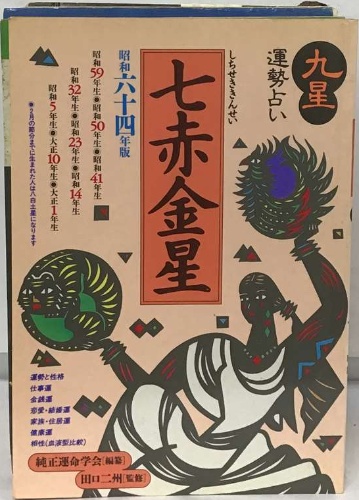 九星
運勢占い
しちせききんせい
七赤金星
昭和六十四年版
昭和59年生●昭和50年生●昭和41年生
昭和32年生●昭和23年生●昭和14年生
昭和5年生●大正10年生●大正1年生
●2月の節分までに生まれた人は八白土星になります
運勢と性格
仕事運
金銭運
恋愛・結婚運
家族・住居運
健康運
相性(血液型比較)
純正運命学会[編纂]
田口二州[監修]